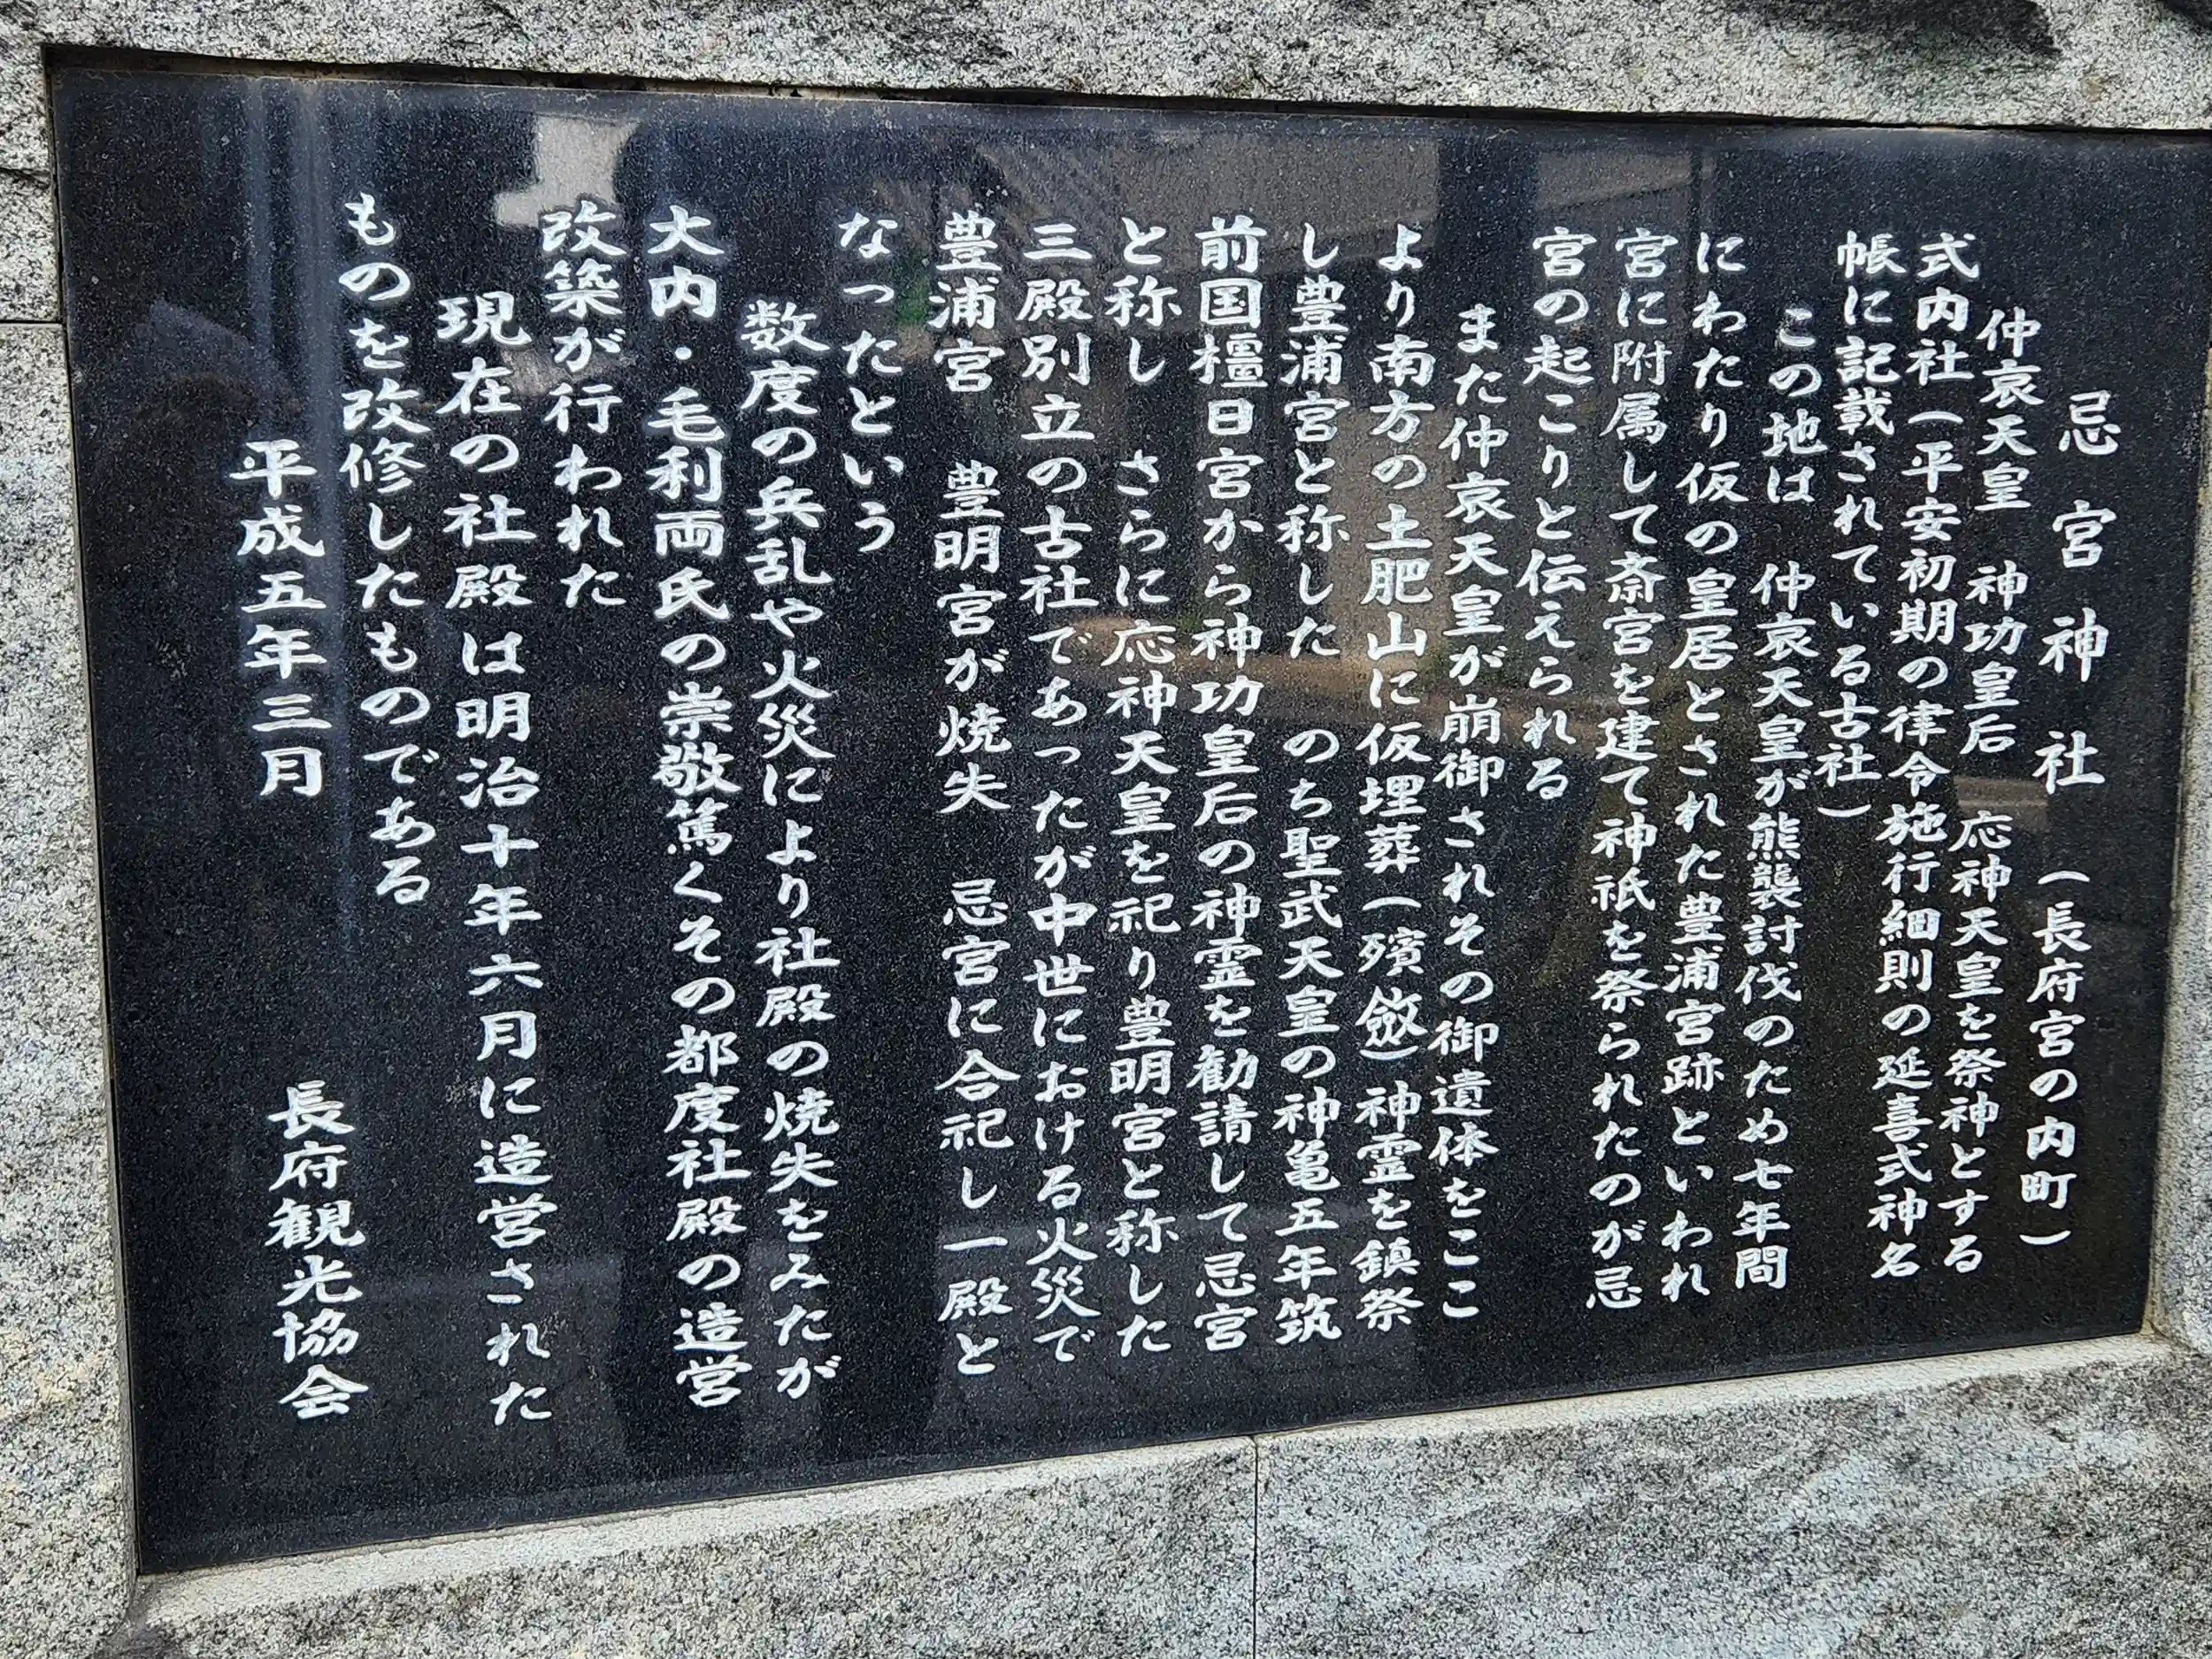 忌宮神社 （長府宮の内町）
仲哀天皇 神功皇后 応神天皇を祭神とする
式内社（平安初期の律令施行細則の延喜式神名
帳に記載されている古社）
この地は 仲哀天皇が熊襲討伐のため七年間
にわたり仮の皇居とされた豊浦宮跡といわれ
宮に附属して斎宮を建て神祇を祭られたのが忌
宮の起こりと伝えられる
また仲哀天皇が崩御されその御遺体をここ
より南方の土肥山に仮埋葬（殯斂）神霊を鎮祭
し豊浦宮と称した のち聖武天皇の神亀五年筑
前国橿日宮から神功皇后の神霊を勧請して忌宮
と称し さらに応神天皇を祀り豊明宮と称した
三殿別立の古社であったが中世における火災で
豊浦宮 豊明宮が焼失 忌宮に合祀し一殿と
なったという
数度の兵乱や火災により社殿の焼失をみたが
大内・毛利両氏の崇敬篤くその都度社殿の造営
改築が行われた
現在の社殿は明治十年六月に造営された
ものを改修したものである
平成五年三月 長府観光協会